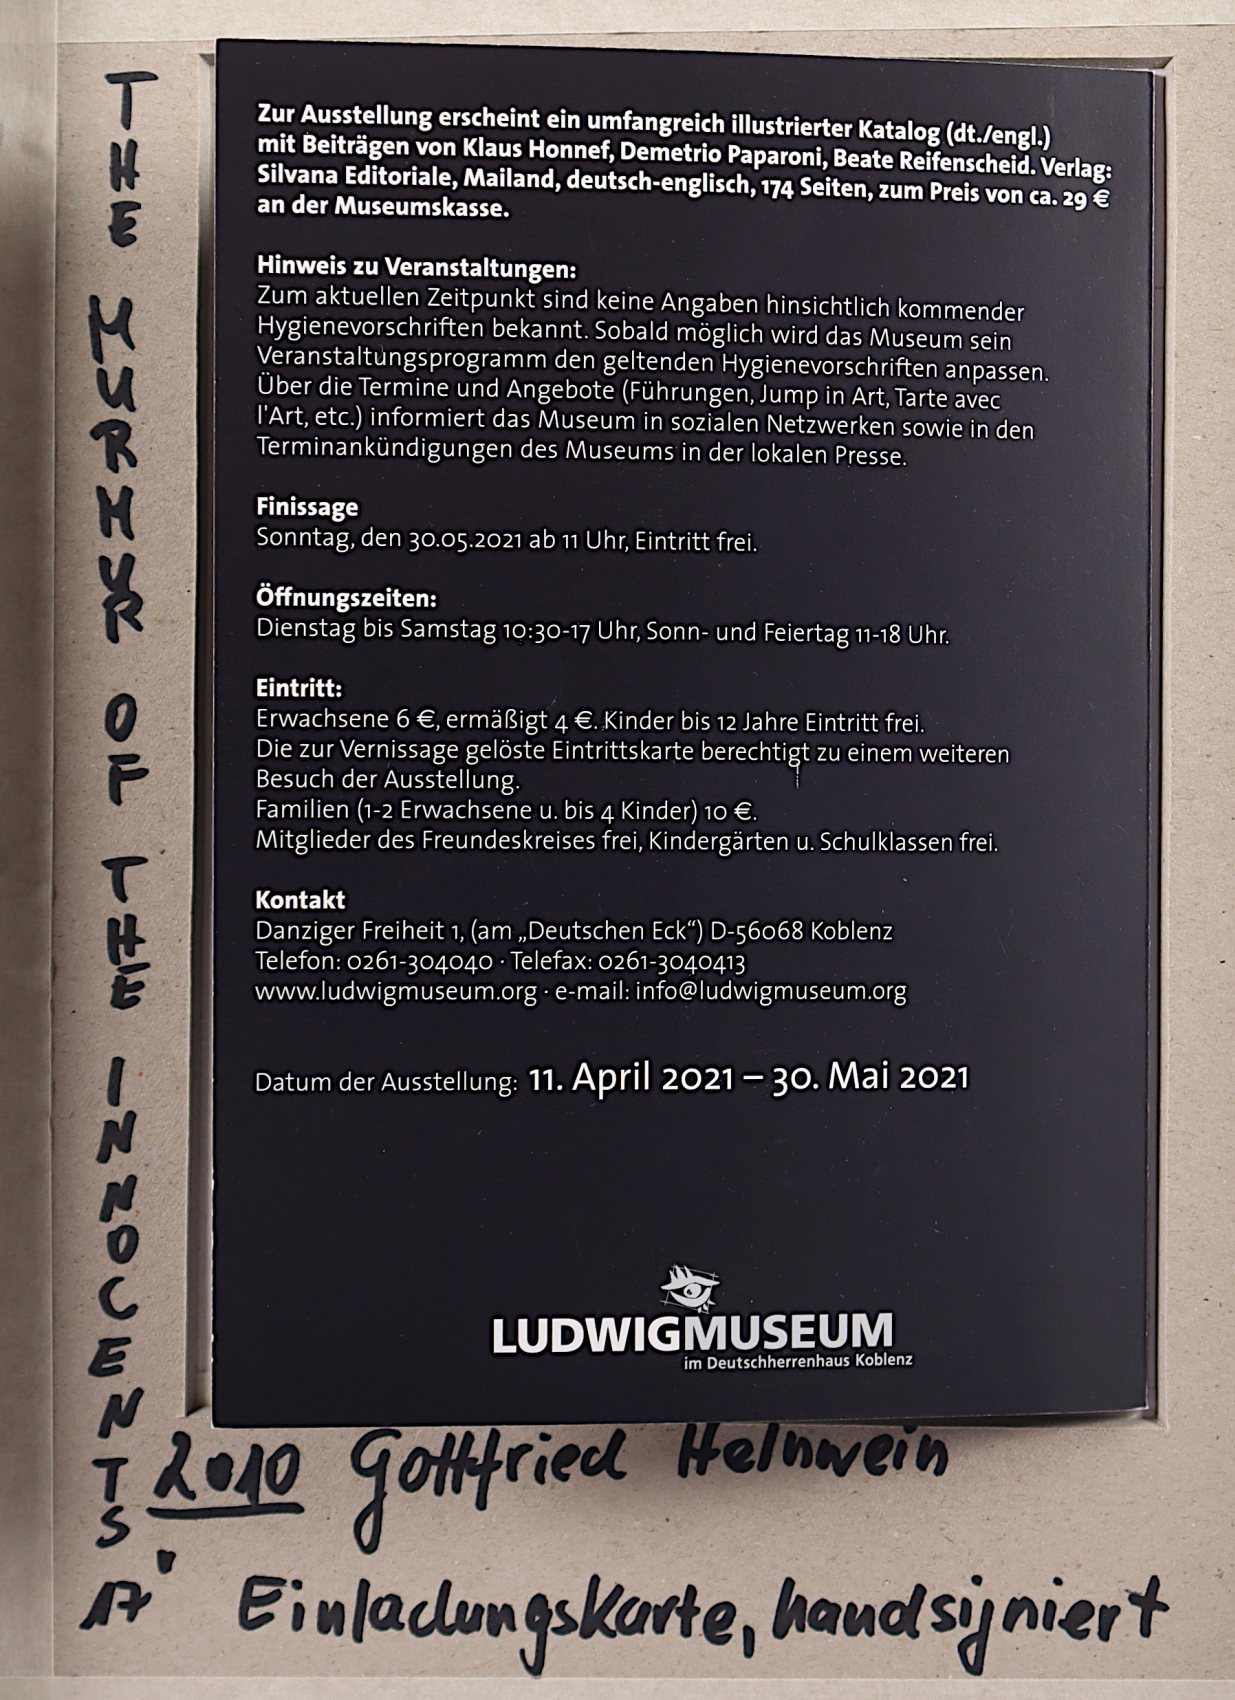 THE MURMUR OF THE INNOCENTS 17
Zur Ausstellung erscheint ein umfangreich illustrierter Katalog (dt./engl.)
mit Beiträgen von Klaus Honnef, Demetrio Paparoni, Beate Reifenscheid. Verlag:
Silvana Editoriale, Mailand, deutsch-englisch, 174 Seiten, zum Preis von ca. 29 €
an der Museumskasse.
Hinweis zu Veranstaltungen:
Zum aktuellen Zeitpunkt sind keine Angaben hinsichtlich kommender
Hygienevorschriften bekannt. Sobald möglich wird das Museum sein
Veranstaltungsprogramm den geltenden Hygienevorschriften anpassen.
Über die Termine und Angebote (Führungen, Jump in Art, Tarte avec
l'Art, etc.) informiert das Museum in sozialen Netzwerken sowie in den
Terminankündigungen des Museums in der lokalen Presse.
Finissage
Sonntag, den 30.05.2021 ab 11 Uhr, Eintritt frei.
Öffnungszeiten:
Dienstag bis Samstag 10:30-17 Uhr, Sonn- und Feiertag 11-18 Uhr.
Eintritt:
Erwachsene 6 €, ermäßigt 4 €. Kinder bis 12 Jahre Eintritt frei.
Die zur Vernissage gelöste Eintrittskarte berechtigt zu einem weiteren
Besuch der Ausstellung.
Familien (1-2 Erwachsene u. bis 4 Kinder) 10 €.
Mitglieder des Freundeskreises frei, Kindergärten u. Schulklassen frei.
Kontakt
Danziger Freiheit 1, (am „Deutschen Eck“) D-56068 Koblenz
Telefon: 0261-304040 · Telefax: 0261-3040413
www.ludwigmuseum.org · e-mail: info@ludwigmuseum.org
Datum der Ausstellung: 11. April 2021 – 30. Mai 2021
LUDWIGMUSEUM
im Deutschherrenhaus Koblenz
2010 Gottfried Helnwein
Einladungskarte, handsigniert